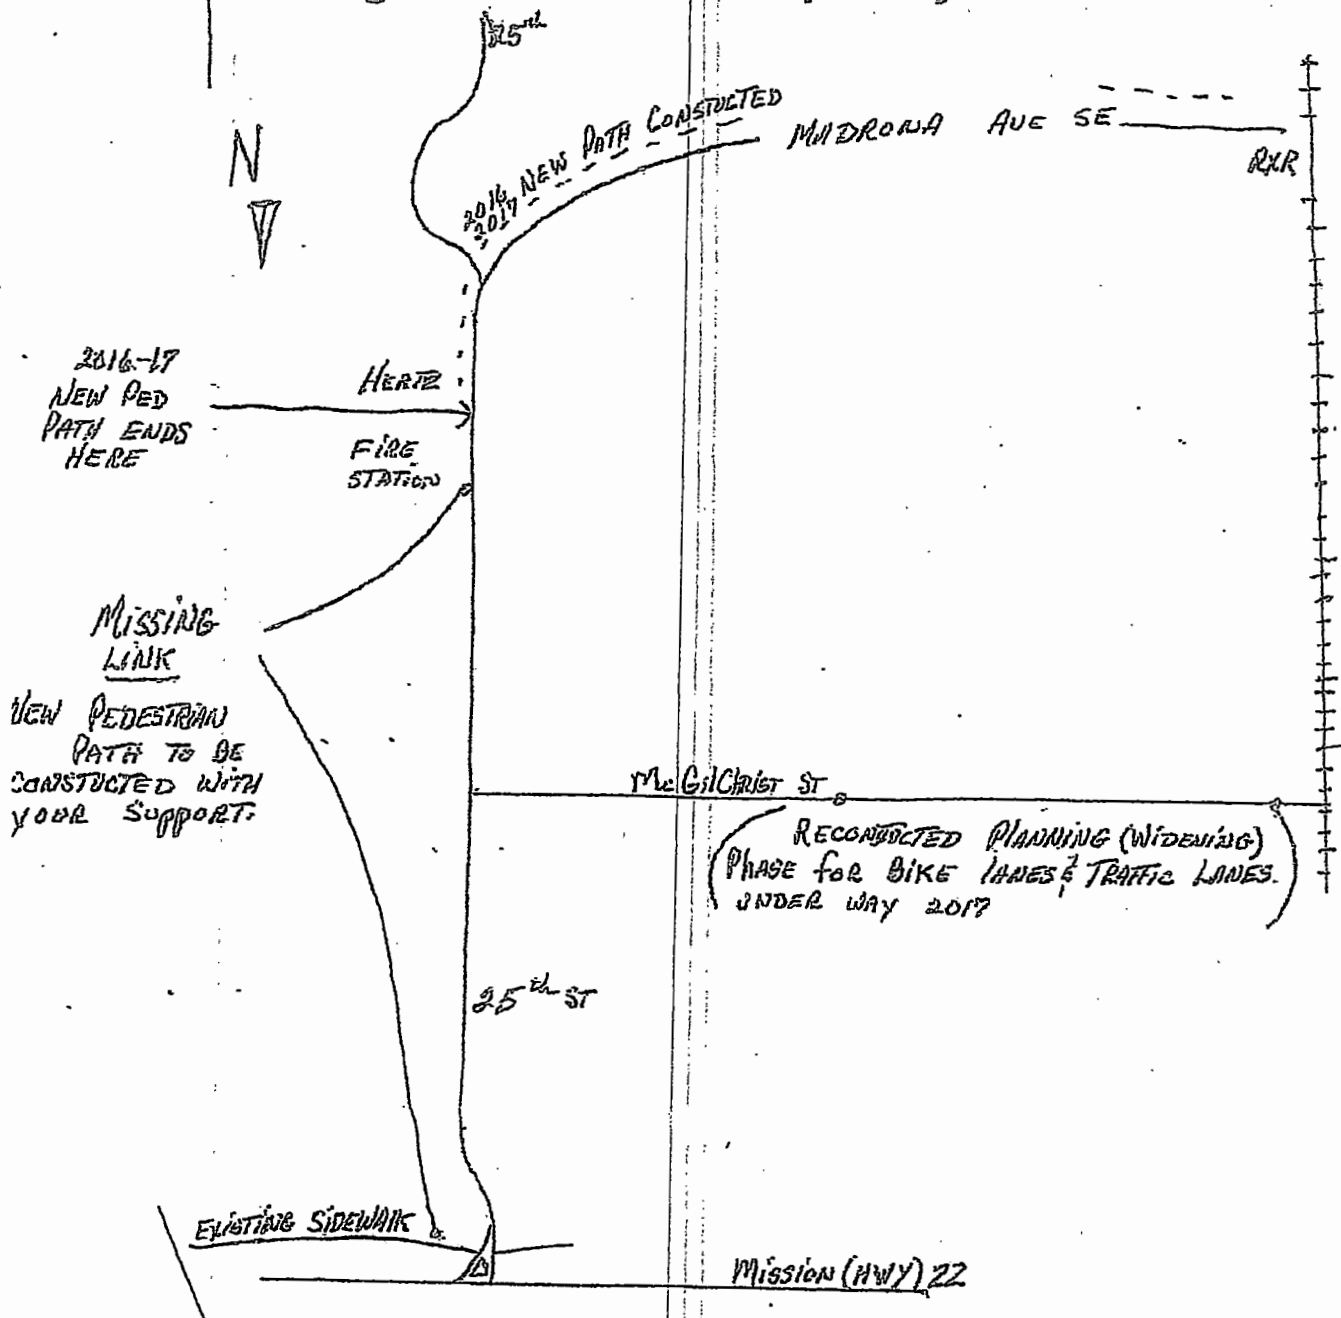 25th
2016 NEW PATH CONSTUCTED
2017
MADRONA AVE SE
RXR
N
2016-17
NEW PED
PATH ENDS
HERE
HERTZ
FIRE
STATION
MISSING
LINK
NEW PEDESTRIAN
PATH TO BE
CONSTUCTED WITH
YOUR SUPPORT.
McGILCHRIST ST
RECONDUCTED PLANNING (WIDENING)
PHASE FOR BIKE LANES & TRAFFIC LANES.
UNDER WAY 2017
25th ST
EXISTING SIDEWALK
MISSION (HWY) 22